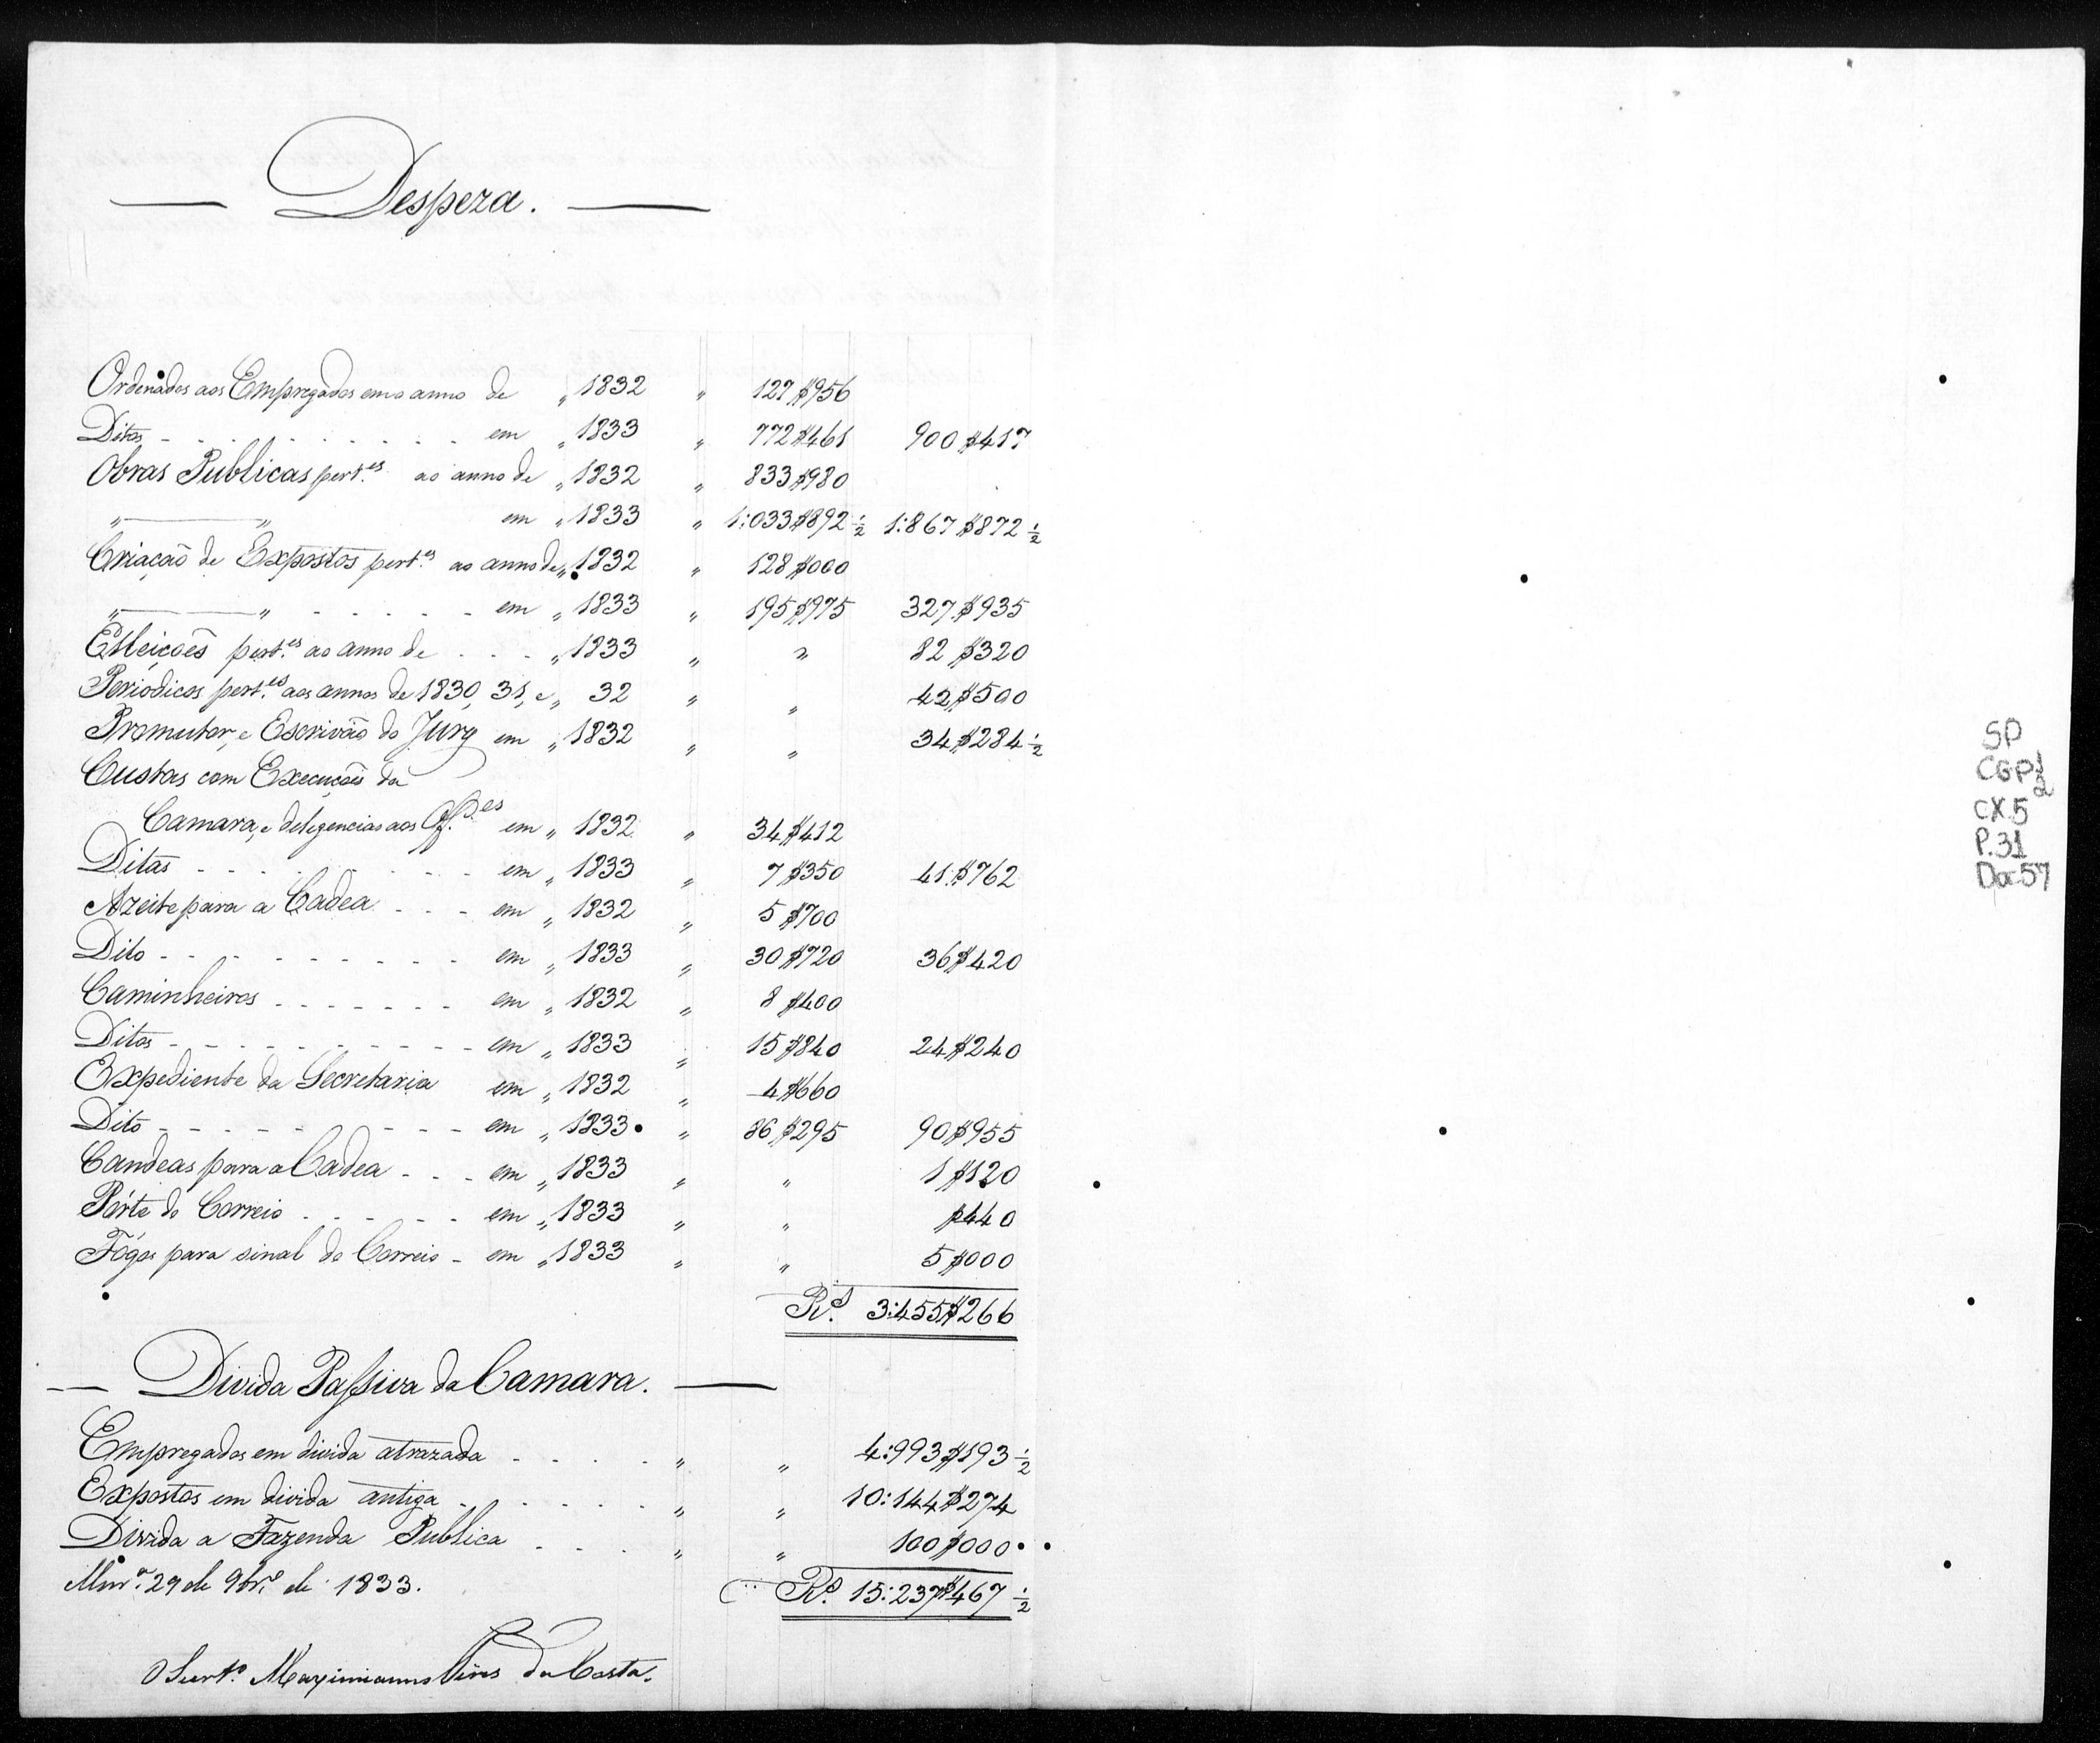 Despeza.
Ordenados aos Empregados em o anno de " 1832 " 127$956
Ditos - - - em " 1833 " 772$461 900$417
Obras Publicas pert.es ao anno de " 1832 " 833$980
" " em " 1833 " 1:033$892 1/2 1:867$872 1/2
Criação de Expostos pert.es ao anno de " 1832 " 128$000
" " - - - em " 1833 " 195$975 327$935
Elleições pert.es ao anno de - - - " 1833 " " 82$320
Periodicos pert.es aos annos de 1830, 31, e " 32 " " 42$500
Promutor, e Escrivão do Jury em " 1832 " " 34$284 1/2
Custas com Execuções da
Camara, e deligencias aos Off.es em " 1832 " 34$412
Ditas - - - em " 1833 " 7$350 41$762
Azeite para a Cadea - - - em " 1832 " 5$700
Dito - - - em " 1833 " 30$720 36$420
Caminheiros - - - em " 1832 " 8$400
Ditos - - - em " 1833 " 15$840 24$240
Expediente da Secretaria em " 1832 " 4$660
Dito - - - em " 1833 " 86$295 90$955
Candeas para a Cadea - - - em " 1833 " " 1$120
Pórte do Correio - - - em " 1833 " " $440
Fógos para sinal do Correio - em " 1833 " " 5$000
R.s 3:455$266
Divida Passiva da Camara.
Empregados em divida atrazada - - - " " 4:993$193 1/2
Expostos em divida antiga - - - " " 10:144$274
Divida a Fazenda Publica - - - " " 100$000
29 de 9br.o de 1833.
R.s 15:237$467 1/2
O Secrt.o Maximianno da Costa.
SP
CGP1
CX.5
P.31
Doc 57